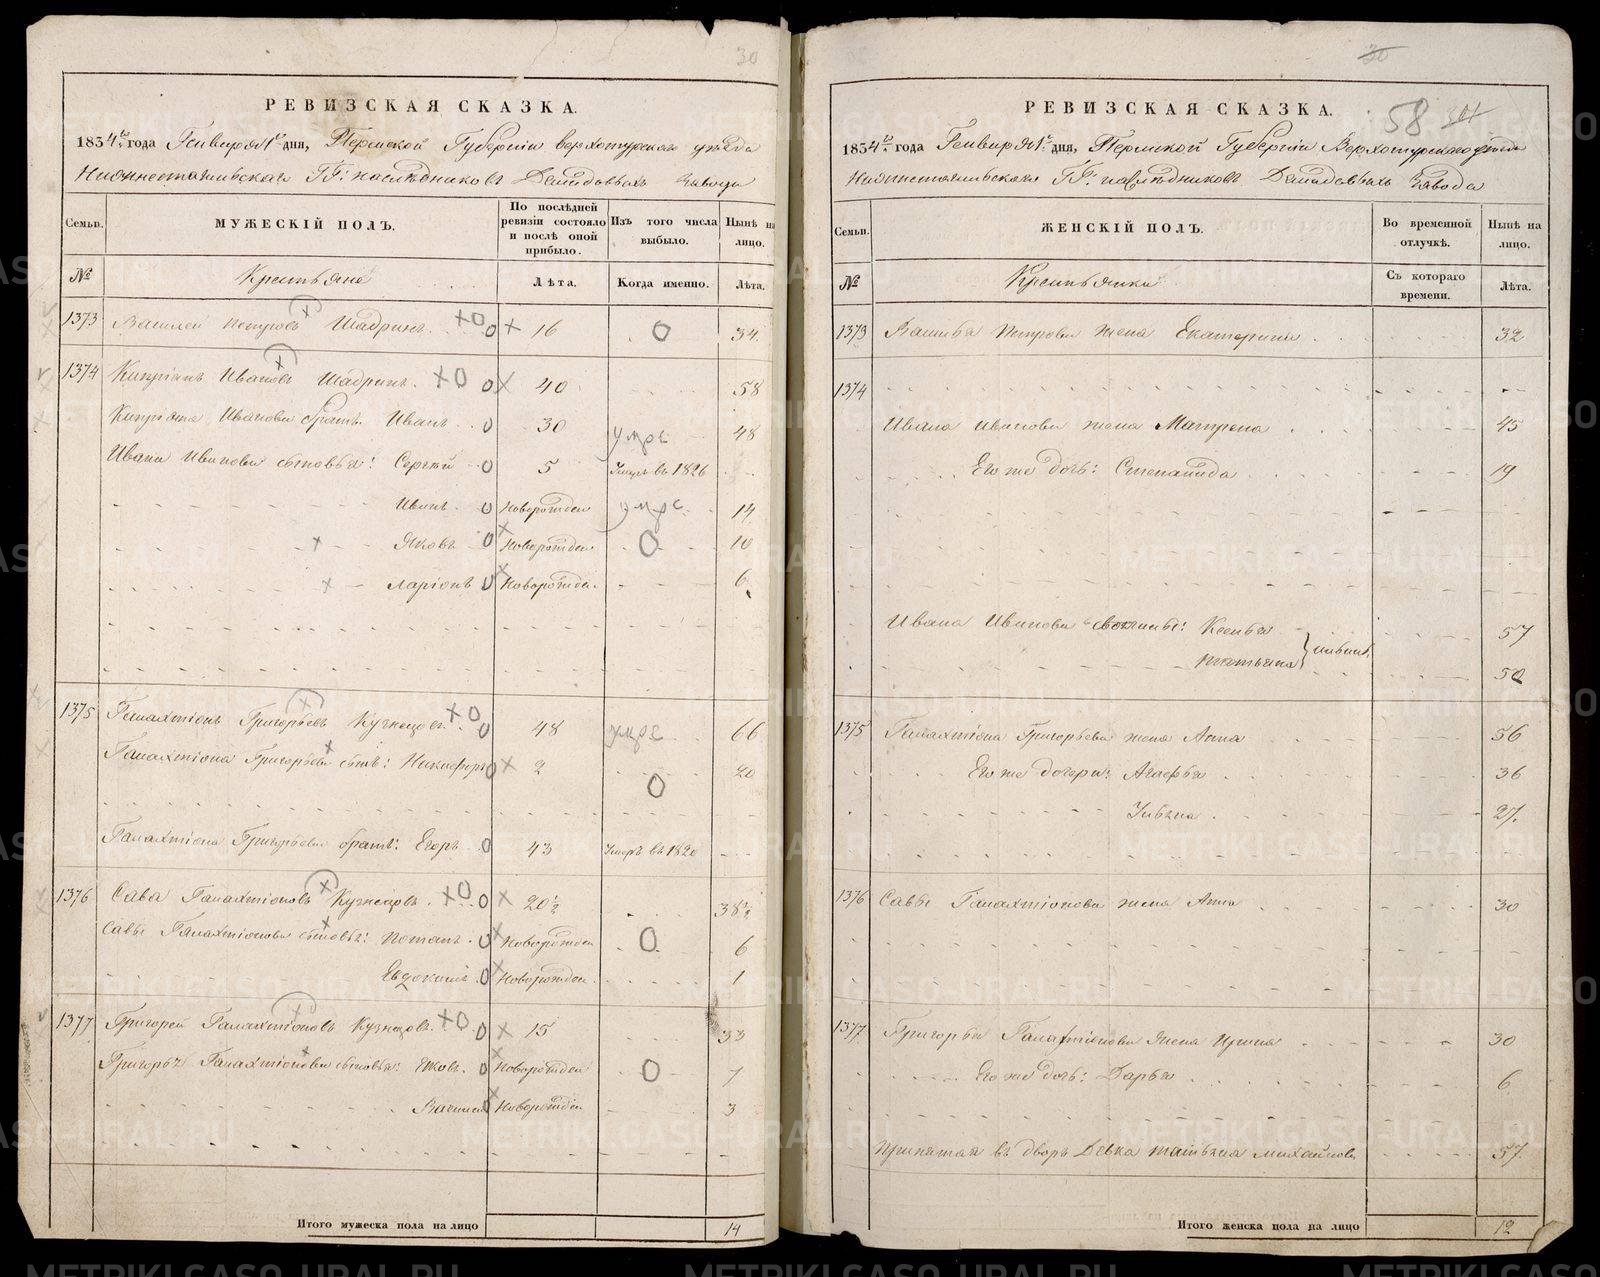 30
РЕВИЗСКАЯ СКАЗКА.
1834го года Генваря 1го дня, Пермской Губернiи верхотурскаго уѣзда
Нижнетагильскаго ГГ: наслѣдниковъ Демидовыхъ Завода
Семьи. МУЖЕСКIЙ ПОЛЪ. По послѣдней ревизiи состояло и послѣ оной прибыло. Изъ того числа выбыло. Нынѣ на лицо.
№ Крестьяне Лѣта. Когда именно. Лѣта.
1373 Василей Петровъ Шадринъ 16 34.
1374 Кипрiянъ Ивановъ Шадринъ. 40 58
Кипрiяна Иванова братъ Иванъ 30 умре 48
Ивана Иванова сыновья: Сергѣй 5 Умеръ въ 1826
Иванъ. новорожден умре 14
Яковъ новорожден 10
Ларiонъ новорожден. 6.
1375 Галахтiонъ Григорьевъ Кузнецовъ 48 умре 66
Галахтiона Григорьева сынъ: Никифоръ 2 20
Галахтiона Григорьева братъ: Егоръ 43 Умеръ въ 1820
1376 Сава Галахтiоновъ Кузнецовъ. 20½ 38½
Савы Галахтiонова сыновья: Потапъ. новорожден 6
Евдокимъ новорожден. 1
1377 Григорей Галахтiоновъ Кузнецовъ. 15 33
Григорья Галахтiонова сыновья: Яковъ. новорожден 7
Василей новорожден 3
Итого мужеска пола на лицо 14
30
58
РЕВИЗСКАЯ СКАЗКА.
1834го года Генваря 1го дня, Пермской Губернiи Верхотурскаго уѣзда
Нижнетагильскаго ГГ: наслѣдниковъ Демидовыхъ Завода
Семьи. ЖЕНСКIЙ ПОЛЪ. Во временной отлучкѣ. Нынѣ на лицо.
№ Крестьянки Съ котораго времени. Лѣта.
1373 Василья Петрова жена Екатерина 32
1374
Ивана Иванова жена Матрена 45
Его же дочь: Степанида 19
Ивана Иванова Ксенья 57
Татьяна 50
1375 Галахтiона Григорьева жена Анна 56
Его же дочери: Агафья 36
Ульяна 27.
1376 Савы Галахтiонова жена Анна 30
1377 Григорья Галахтiонова жена Ирина 30
Его же дочь: Дарья 6
Принятая въ дворъ Девка Татьяна Михайлова 57
Итого женска пола на лицо 12
METRIKI.GASO-URAL.RU